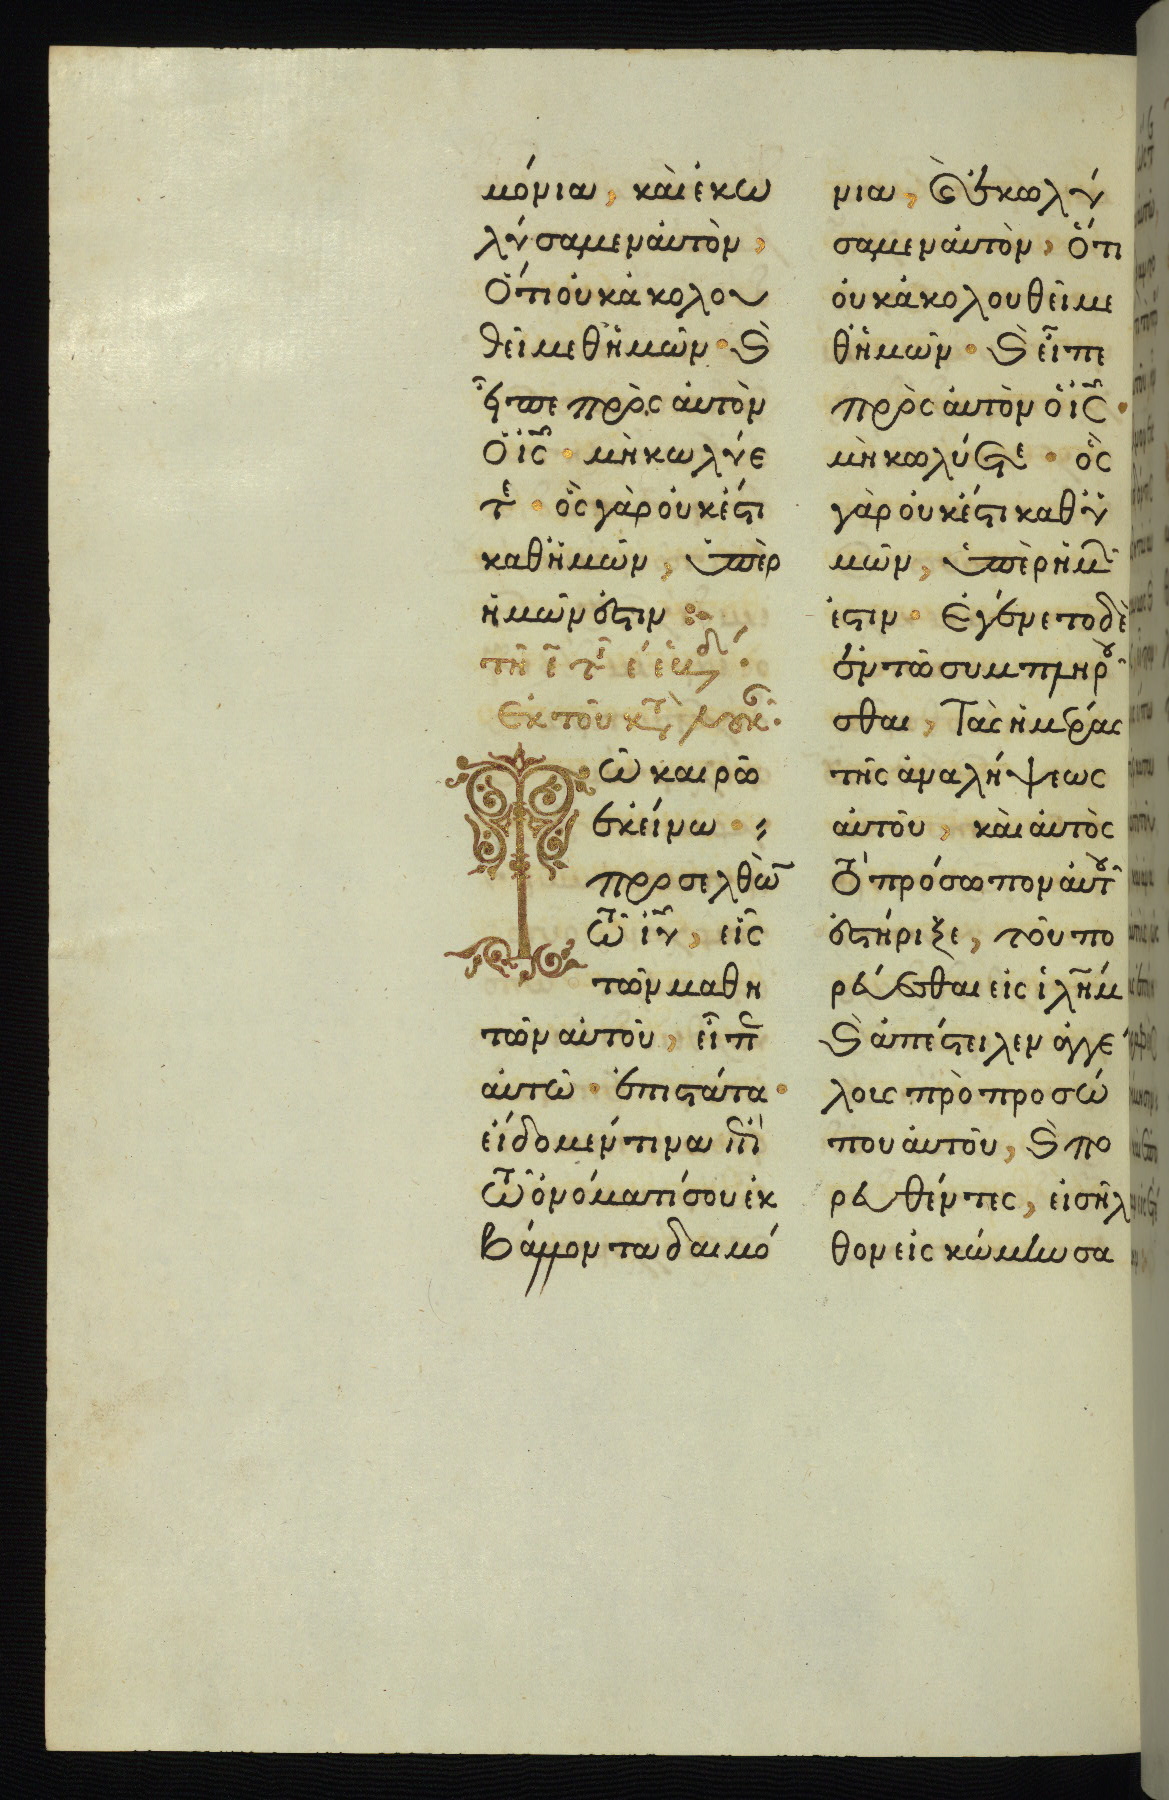 μόνια, καὶ ἐκω
λύσαμεν αὐτὸν,
Ὅτι οὐκ ἀκολου
θεῖ μεθ ἡμῶν· ϗ
εἶπε πρὸς αὐτὸν
Ὁ ἰς̅· μὴ κωλύε
τε· ὃς γὰρ οὐκ ἔστι
καθ ἡμῶν, ὑπὲρ
ἡμῶν ἐστιν:
τῇ ε̅
Ἐκ τοῦ κτ̀ λουκ·
Τῶ καιρῶ
ἐκείνω·
προσελθὼ̅
τῶ ἰυ̅, εἷς
τῶν μαθη
τῶν αὐτοῦ, εἶπ
αὐτῶ· ἐπιστάτα·
εἴδομέν τινα ἐπὶ
τῶ ὀνόματί σου ἐκ
βάλλοντα δαιμό
νια, ϗ ἐκωλύ
σαμεν αὐτὸν, Ὅτι
οὐκ ἀκολουθεῖ με
θ ἡμῶν· ϗ εἶπε
πρὸς αὐτὸν ὁ ἰς̅·
μὴ κωλύετε· ὃς
γὰρ οὐκ ἔστι καθ ὑ
μῶν, ὑπὲρ ἡμῶ
ἐστιν· Ἐγένετο δὲ
ἐν τῶ συμπληροῦ
σθαι, Τὰς ἡμέρας
τῆς ἀναλήψεως
αὐτοῦ, καὶ αὐτὸς
Τὸ πρόσωπον αὑτοῦ
ἐστήριξε, τοῦ πο
ρεύεσθαι εἰς ἰλη̅μ
ϗ ἀπέστειλεν ἀγγέ
λοις πρὸ προσώ
που αὐτοῦ, ϗ πο
ρευθέντες, εἰσῆλ
θον εἰς κώμην σα